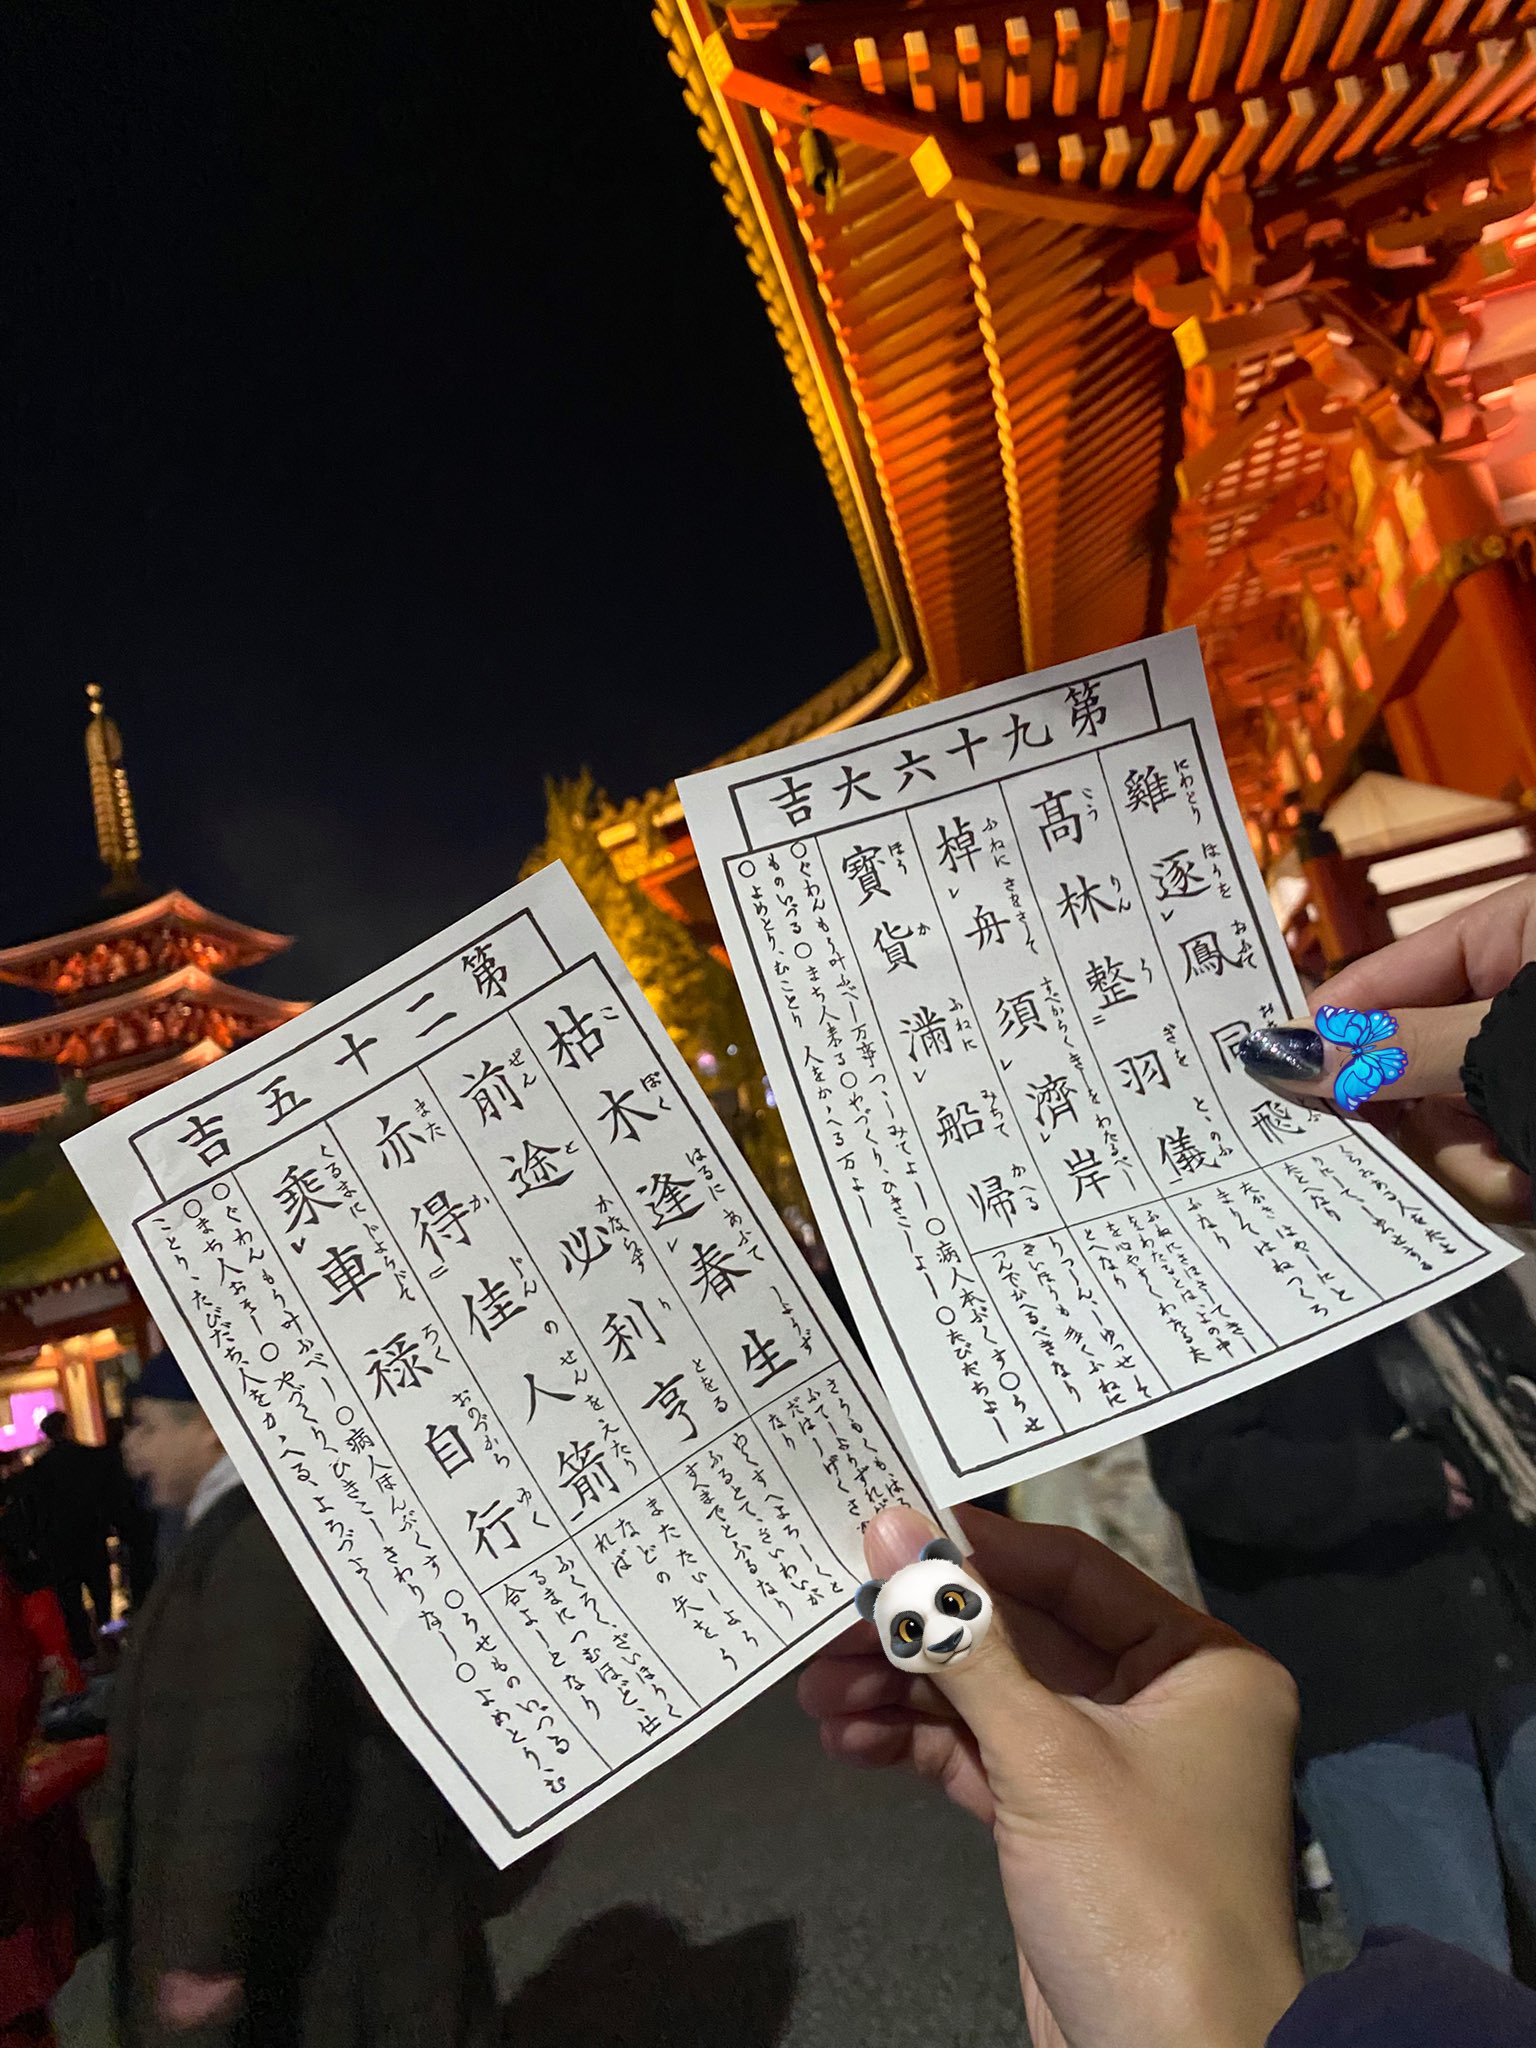 第二十五吉
枯木逢春生
こ ぼく はるに あふて しょうず
前途必利亨
ぜん と かならず り とをる
亦得佳人箭
また か じんの せんを えたり
乗車禄自行
くるまに じょうじて ろく おのづから ゆく
ゆくすへよろしくと
ふるとて、さいわいが
すへまでとふるなり
またたいしよう
などの矢をう
れば
ふくろく、ざいほうく
るまにつむほど、仕
合よしとなり
○ぐわんもう叶ふべし○病人ほんぶくす○うせものいづる
○まち人おそし○やづくり、ひきこしさわりなし○よめとり、む
ことり、たびだち、人をかゝへる、よろづよし
第九十六大吉
雞逐鳳同飛
にわとり ほうを おふて
高林整羽儀
こう りん う ぎを とゝのふ
棹舟須濟岸
ふねに さをさして すべからくきしをわたるべし
寶貨満船帰
ほう か ふねに みちて かへる
たかきはやしにと
まりてはねつくろ
ふなり
○ぐわんもう叶ふべし万事つゝしみてよし○病人本ぶくす○うせ
ものいづる○まち人来る○やづくり、ひきこしよし○たびだちよし
○よめとり、むことり 人をかゝへる万よし